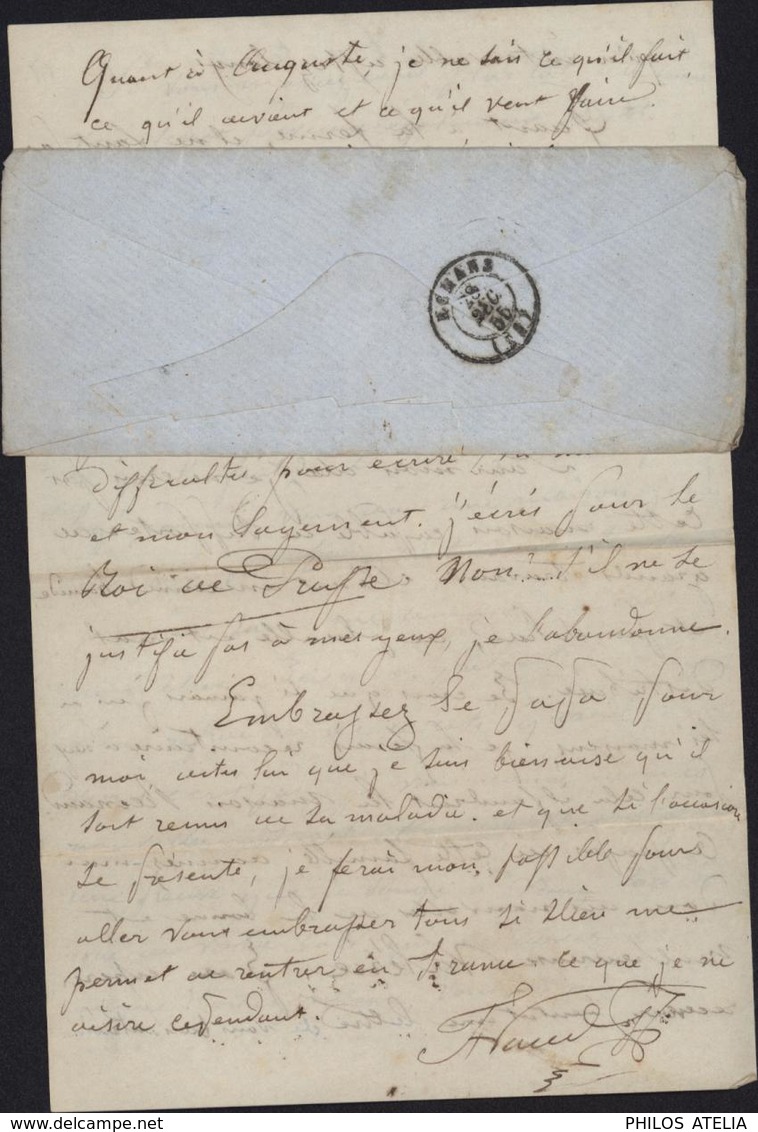 Quant à Auguste, je ne sais ce qu'il fait,
ce qu'il devient et ce qu'il veut faire.
ROMANS
28
DEC
55
(25)
difficultés pour écrire
et mon logement. j'écris pour le
Roi de Prusse Non? s'il ne se
justifie pas à mes yeux, je l'abandonne.
Embrassez le papa pour
moi dites lui que je suis bien aise qu'il
soit remis de sa maladie. et que si l'occasion
se présente, je ferai mon possible pour
aller vous embrasser tous si Dieu me
permet de rentrer en France ce que je ne
désire cependant.
PHILOS ATELIA